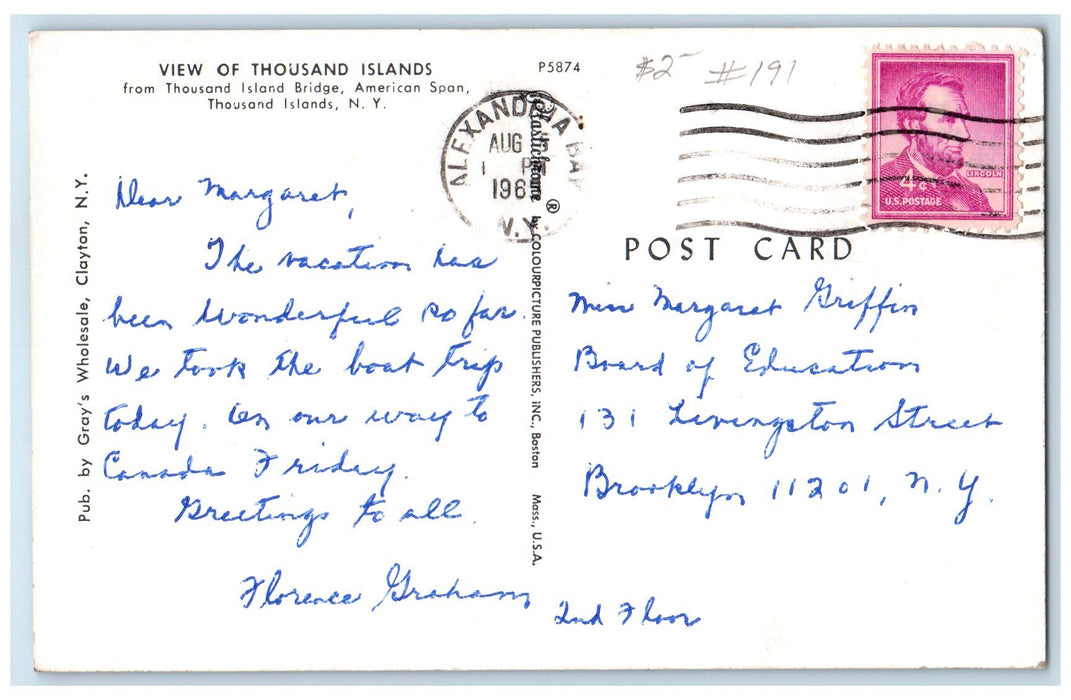 VIEW OF THOUSAND ISLANDS
from Thousand Island Bridge, American Span,
Thousand Islands, N. Y.
P5874
$2-
#191
ALEXANDRIA BAY
AUG
1 PM
196
N.Y.
4¢
LINCOLN
U.S. POSTAGE
Pub. by Gray's Wholesale, Clayton, N.Y.
Plastichrome ® by COLOURPICTURE PUBLISHERS, INC., Boston Mass., U.S.A.
POST CARD
Dear Margaret,
The vacation has
been wonderful so far.
We took the boat trip
today. On our way to
Canada Friday.
Greetings to all.
Florence Graham
Miss Margaret Griffin
Board of Education
131 Livingston Street
Brooklyn 11201, N.Y.
2nd Floor